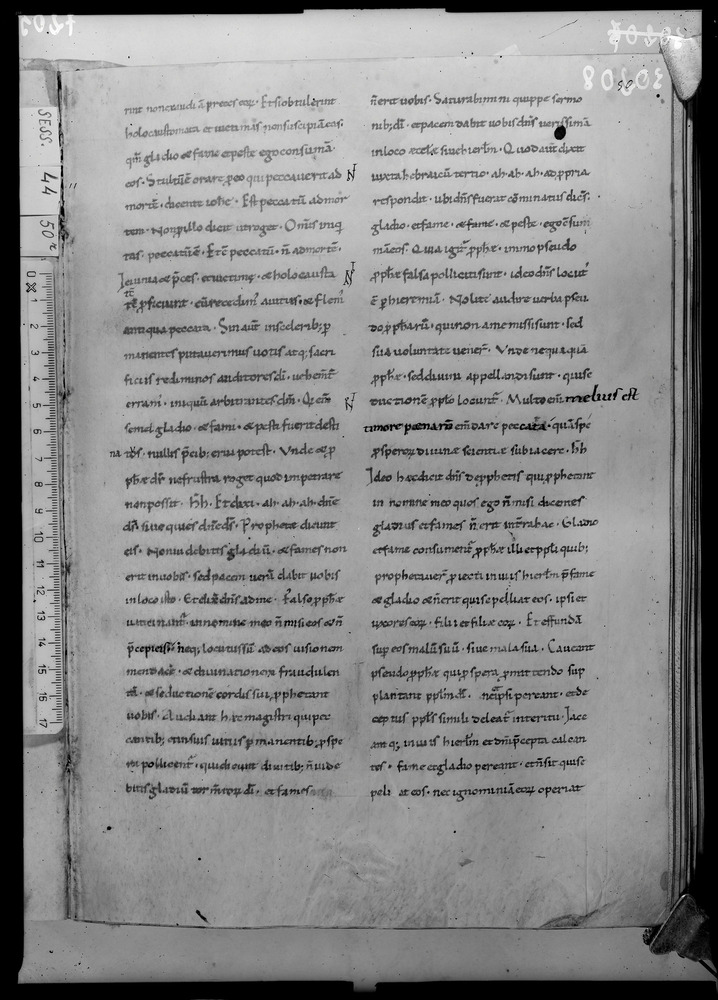 rint non exaudiã preces eoꝝ. Et si obtulerint
holocaustomata et uictimas non suscipiã eas.
qm̃ gladio & fame et peste ego consumã
eos. Stultũ ẽ orare p eo qui peccauerit ad
mortẽ. dicente iohe. Est peccatũ ad mor
tem. Non p illo dicit ut roget. Omnis iniq
tas. peccatũ ẽ. Et ẽ peccatũ. ñ ad mortẽ.
Ieiunia & p̃ces. et uictimę. & holocausta
tc̃ proficiunt. cũ recedim̃ a uitiis. & flem̃
antiqua peccata. Sin aũt in scelerib; p
manentes putauerimus uotis atq; sacri
ficiis redimi nos auditores di. uehem̃t
erram̃. iniquũ arbitrantes dm̃. Q em̃
semel gladio. & fami. & pesti fuerit desti
na tus. nullis p̃cib; erui potest. Vnde & p
phæ dr̃ ne frustra roget quod impetrare
non possit. Hh. Et dixi. ah. ah. ah. dne
ds̃ siue qui es dñe ds̃. Prophetæ dicunt
eis. Non uidebitis gladiũ. & fames non
erit in uobis. sed pacem uerã dabit uobis
in loco isto. Et dix dns ad me. Falso pphæ
uaticinant̃ in nomine meo ñ misi eos & ñ
p̃cepi eis. neq; locutus sũ ad eos uisionem
mendacẽ. & diuinationem fraudulen
tã. & seductionẽ cordis sui, pphetant
uobis. Audiant hæc magistri qui pec
cantib; et in suis uitiis p manentib; pspe
ra pollicent̃. qui dicunt diuitib; ñ uide
bitis gladiũ tormtoꝝ di. et fames
ñ erit uobis. Saturabim ni quippe sermo
nib; di. et pacem dabit uobis dns uerissimã
in loco æcclæ siue hierlm̃. Quod aũt dixit
iuxta hebraicũ tertio. ah. ah. ah. ad ppria
respondit. ubi dns fuerat cõminatus dics.
gladio. et fame. & fame. & peste. ego csum
mã eos. Quia igit̃ pphæ. immo pseudo
pphæ falsa polliciti sunt. ideo dns locut
ẽ p hieremiã. Nolite audire uerba pseu
do ppharũ. qui non a me missi sunt. sed
sua uoluntate uener̃. Vnde nequaquã
pphæ. sed diuini appellandi sunt. qui se
ductione pplo locunt̃. Multo em melius est
timore pœnarũ emdare peccata. quã spe
prosperoꝝ diuinæ scientiæ subiacere. Hh
Ideo hæc dicit dns de pphetis qui pphetant
in nomine meo quos ego ñ misi dicentes
gladius et fames ñ erit in terra hac. Gladio
et fame consument̃ pphæ illi et ppli quib;
prophetauer̃. piecti in uiis hierlm̃ p fame
& gladio & ñ erit qui sepelliat eos. ipsi et
uxores eoꝝ. filii et filiæ eoꝝ. Et effundã
sup eos malũ suũ. siue mala sua. Caueant
pseudo pphæ qui pspera pmittendo sup
plantant pplm di. ne & ipsi pereant. et de
ceptus ppls simili deleat̃ interitu. Iace
ant q; in uiis hierlm̃ et dni p̃cepta calcan
tes. fame et gladio pereant. et ñ sit qui se
peli at eos. nec ignominiã eoꝝ operiat
SESS. 44
50 r